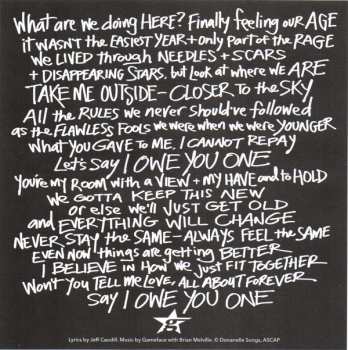 What are we doing HERE? Finally feeling our AGE
it WASN't the EASIEST YEAR + only PARt of the RAGE
we LIVED through NEEDLES + SCARS
+ DISAPPEARING STARS. but Look at where we ARE
TAKE ME OUTSIDE - CLOSER to the SKY
All the RULES we never Should've followed
as the FLAWLESS FOOLS we were when we were YOUNGER
What you GAVE to ME, I CANNOT REPAY
Let's SAY I OWE YOU ONE
You're my ROOM with a VIEW + my HAVE and to HOLD
We GOTTA KEEP THIS NEW
or else we'll JUST GET OLD
and EVERYTHING WILL CHANGE
NEVER STAY the SAME - ALWAYS FEEL the SAME
EVEN NOW things are getting BETTER
I BELIEVE in HOW we JUST FIT TOGETHER
Won't you TELL ME LOVE, ALL ABOUT FOREVER
SAY I OWE YOU ONE
Lyrics by Jeff Caudill. Music by Gameface with Brian Melville. © Donanelle Songs, ASCAP